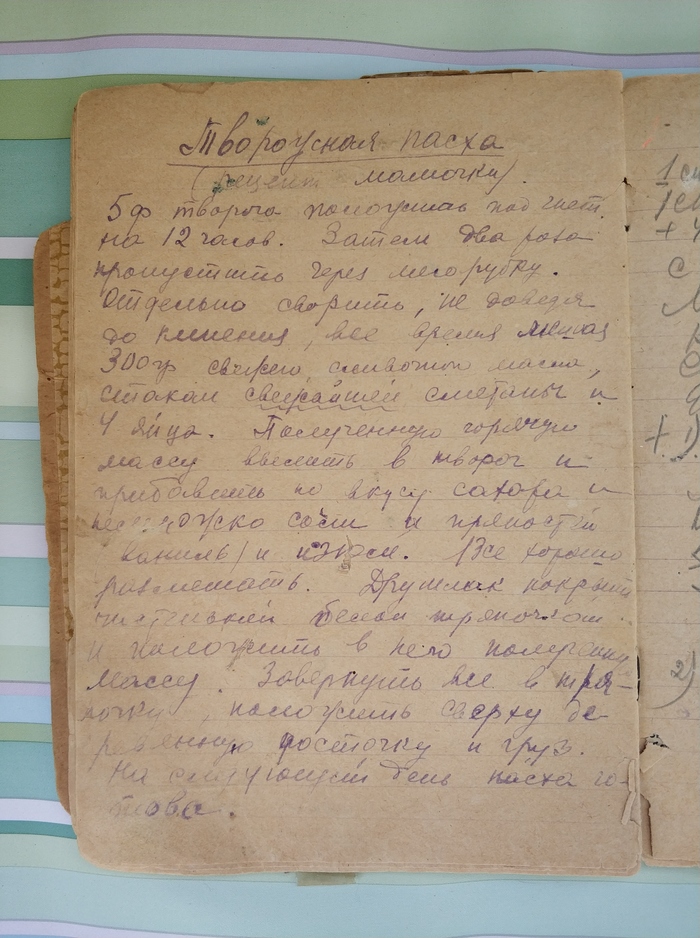 Творожная пасха
(рецепт мамочки).
5 ф творога положить под гнет
на 12 часов. Затем два раза
пропустить через мясорубку.
Отдельно сварить, не доведя
до кипения, все время мешая
300 гр свежего сливочного масла,
стакан свежайшей сметаны и
4 яйца. Полученную горячую
массу вмешать в творог и
прибавить по вкусу сахара и
немножко соли и пряностей
ваниль) и изюм. Все хорошо
размешать. Друшлак покрыть
чистенькой белой тряпочкой
и положить в него полученную
массу. Завернуть все в тря-
почку, положить сверху де-
ревянную досточку и груз.
На следующий день пасха го-
това.
1
+
с
+ 1)
2)